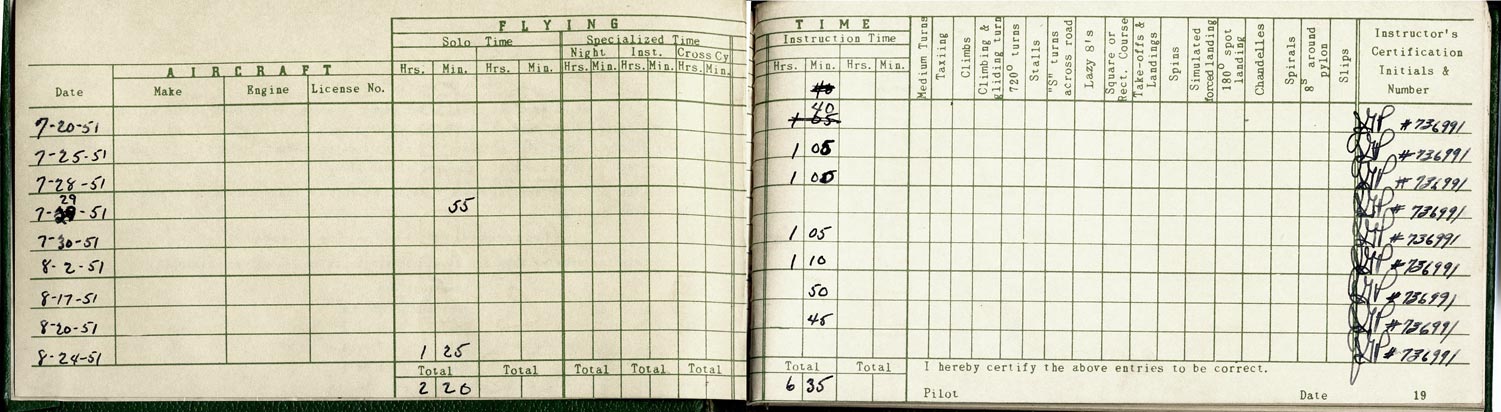 FLYING TIME
Solo Time Specialized Time Instruction Time
Night Inst. Cross Cy
AIRCRAFT Hrs. Min. Hrs. Min. Hrs. Min. Hrs. Min. Hrs. Min. Hrs. Min. Hrs. Min.
Date Make Engine License No.
Medium Turns
Taxiing
Climbs
Climbing & gliding turn
720° turns
Stalls
"S" turns across road
Lazy 8's
Square or Rect. Course
Take-offs & Landings
Spins
Simulated forced landing
180° spot landing
Chandelles
Spirals
8s around pylon
Slips
Instructor's
Certification
Initials &
Number
40
7-20-51 1 05 #736991
7-25-51 1 05 #736991
7-28-51 1 00 #736991
7-29-51 55 #736991
7-30-51 1 05 #736991
8-2-51 1 10 #736991
8-17-51 50 #736991
8-20-51 45 #736991
8-24-51 1 25 #736991
Total Total Total Total Total Total Total
2 20 6 35
I hereby certify the above entries to be correct.
Pilot Date 19